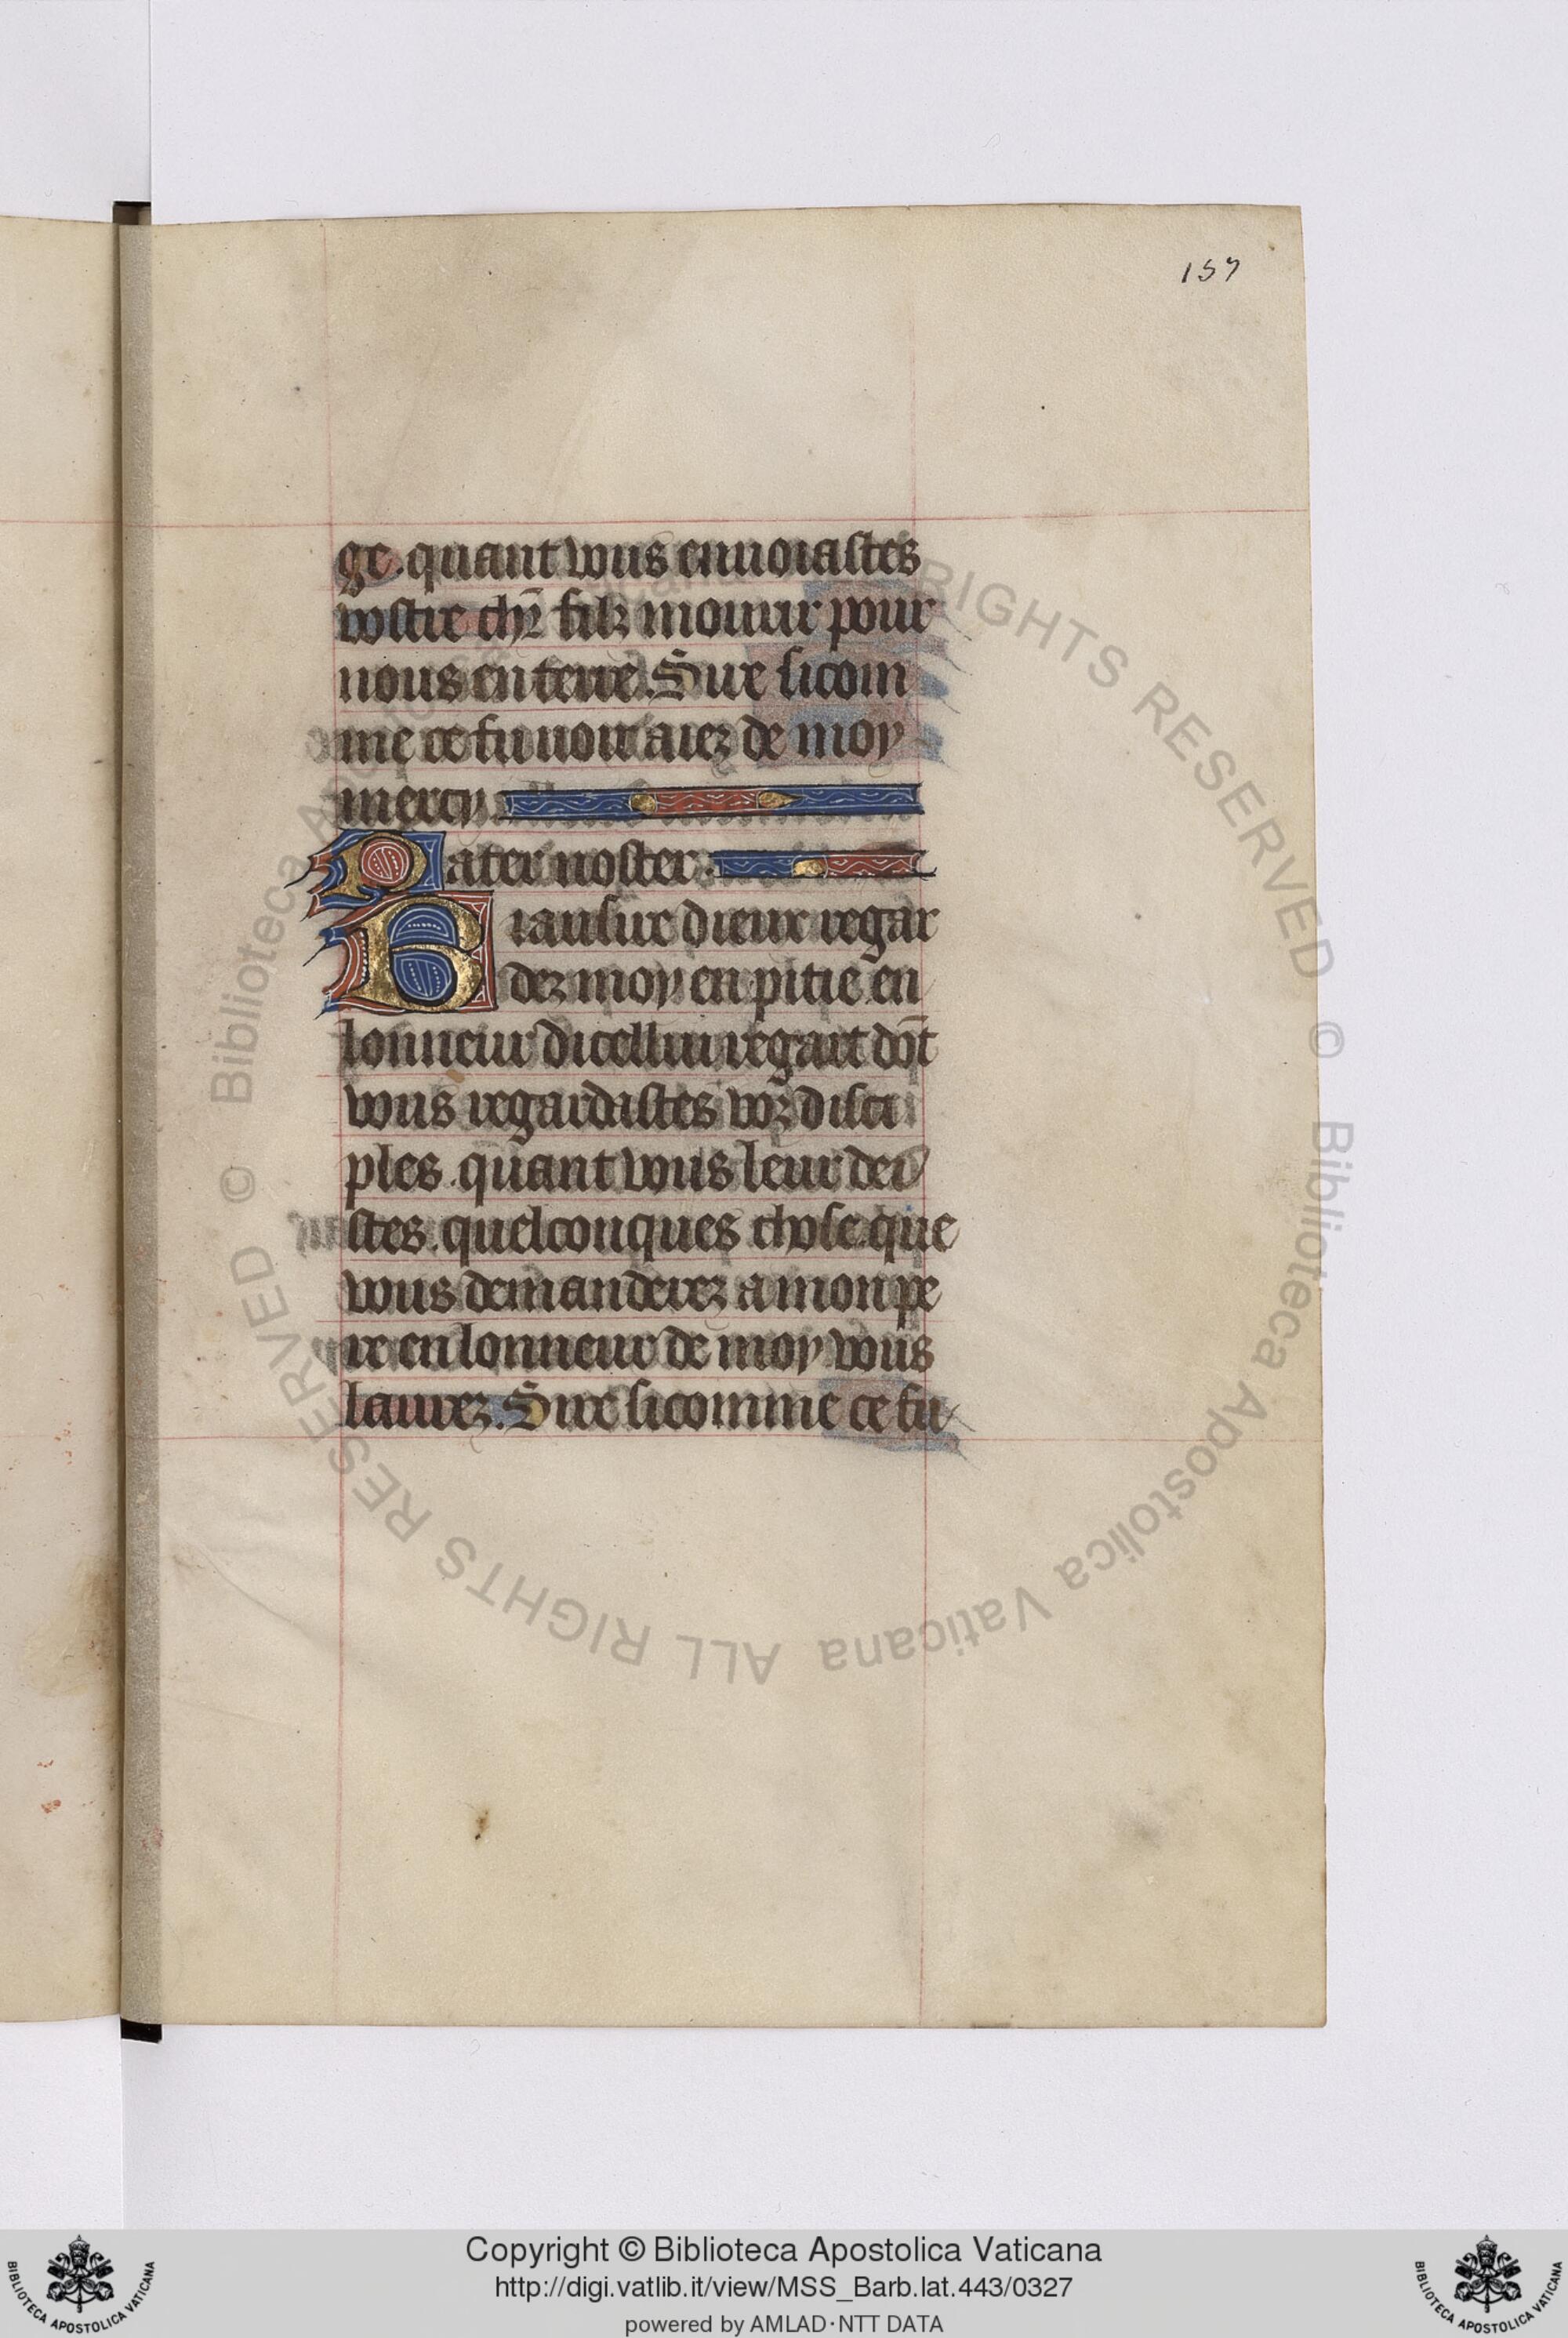 157
ge. quant vous enuoiastes
vostre chr̄ filz mourir pour
nous en terre. Sire sicom
me ce fu uoir aiez de moy
mercy.
Pater noster.
Biau sire dieux regar
dez moy en pitie en
lonneur dicellui regart dōt
vous regardastes voz disci
ples. quant vous leur dei
stes. quelconques chose que
vous demanderez a mon pe
re en lonneur de moy vous
laurez. Sire sicomme ce fu
© Biblioteca Apostolica Vaticana ALL RIGHTS RESERVED © Biblioteca Apostolica Vaticana ALL RIGHTS RESERVED
Copyright © Biblioteca Apostolica Vaticana
http://digi.vatlib.it/view/MSS_Barb.lat.443/0327
powered by AMLAD·NTT DATA
BIBLIOTECA APOSTOLICA VATICANA
BIBLIOTECA APOSTOLICA VATICANA